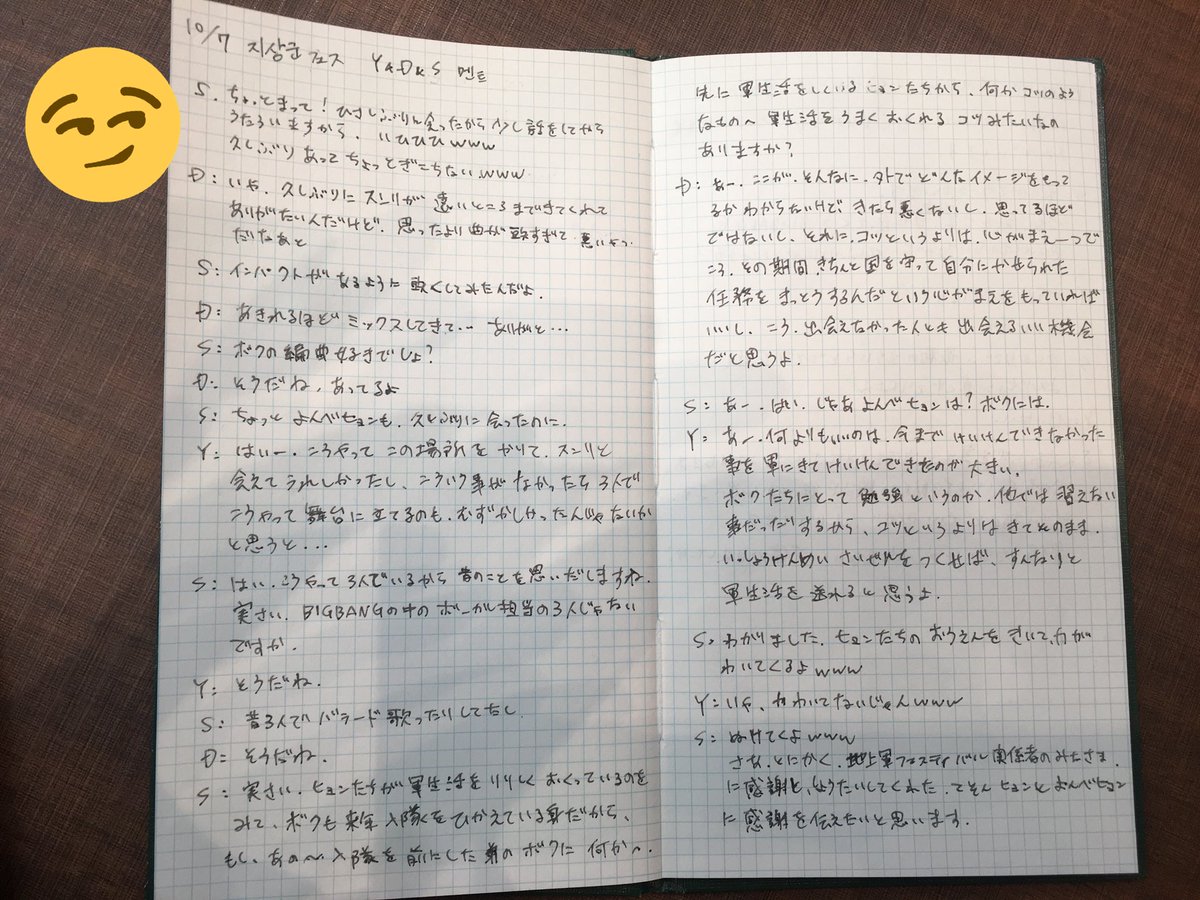 10/7 지상군 フェス Y&D&S 멘트
S. ちょっとまって！ひさしぶりに会ったから少し話をしてから
うたういますから、いひひひwww
久しぶりあってちょっとぎこちないwww
D: いや、久しぶりにスンリが遠いところまできてくれて
ありがたいんだけど、思ったより曲が強すぎて、悪いやつ
だなあと
S: インパクトがあるように強くしてみたんだよ。
D: あきれるほどミックスしてきて… ありがと…
S: ボクの編曲好きでしょ？
D: そうだね、あってるよ
S: ちょっとよんべヒョンも、久しぶりに会ったのに、
Y: はいー、こうやってこの場所をかりて、スンリと
会えてうれしかったし、こういう事がなかったら3人で
こうやって舞台に立てるのも、むずかしかったんじゃないか
と思うと…
S: はい、こうやって3人でいるから昔のことを思いだしますね。
実さい、BIGBANGの中のボーカル担当の3人じゃない
ですか。
Y: そうだね。
S: 昔3人でバラード歌ったりしてたし、
D: そうだね。
S: 実さい、ヒョンたちが軍生活をりりしくおくっているのを
みて、ボクも来年入隊をひかえている身だから、
もし、あの〜入隊を前にした弟のボクに何か〜、
先に軍生活をしているヒョンたちから、何かコツのよう
なもの〜軍生活をうまくおくれるコツみたいなの
ありますか？
D: あー、ここが、そんなに、外でどんなイメージをもって
るかわからないけど、きたら悪くないし、思ってるほど
ではないし、それに、コツというよりは、心がまえ一つで
こう、その期間、きちんと国を守って自分にかせられた
任務をまっとうするんだという心がまえをもっていれば
いいし、こう、出会えなかった人とも出会えるいい機会
だと思うよ。
S: あー、はい、じゃあよんべヒョンは？ボクには、
Y: あー、何よりもいいのは、今までけいけんできなかった
事を軍にきてけいけんできたのが大きい。
ボクたちにとって勉強というのか、他では習えない
事だったりするから、コツというよりはきてそのまま、
いっしょうけんめいさいぜんをつくせば、すんなりと
軍生活を送れると思うよ。
S: わかりました、ヒョンたちのおうえんをきいて、力が
わいてくるよwww
Y: いや、わいてないじゃんwww
S: ぬけてくよwww
さあ、とにかく、地上軍フェスティバル関係者のみなさま
に感謝と、しょうたいしてくれた、てそんヒョンとよんべヒョン
に感謝を伝えたいと思います。